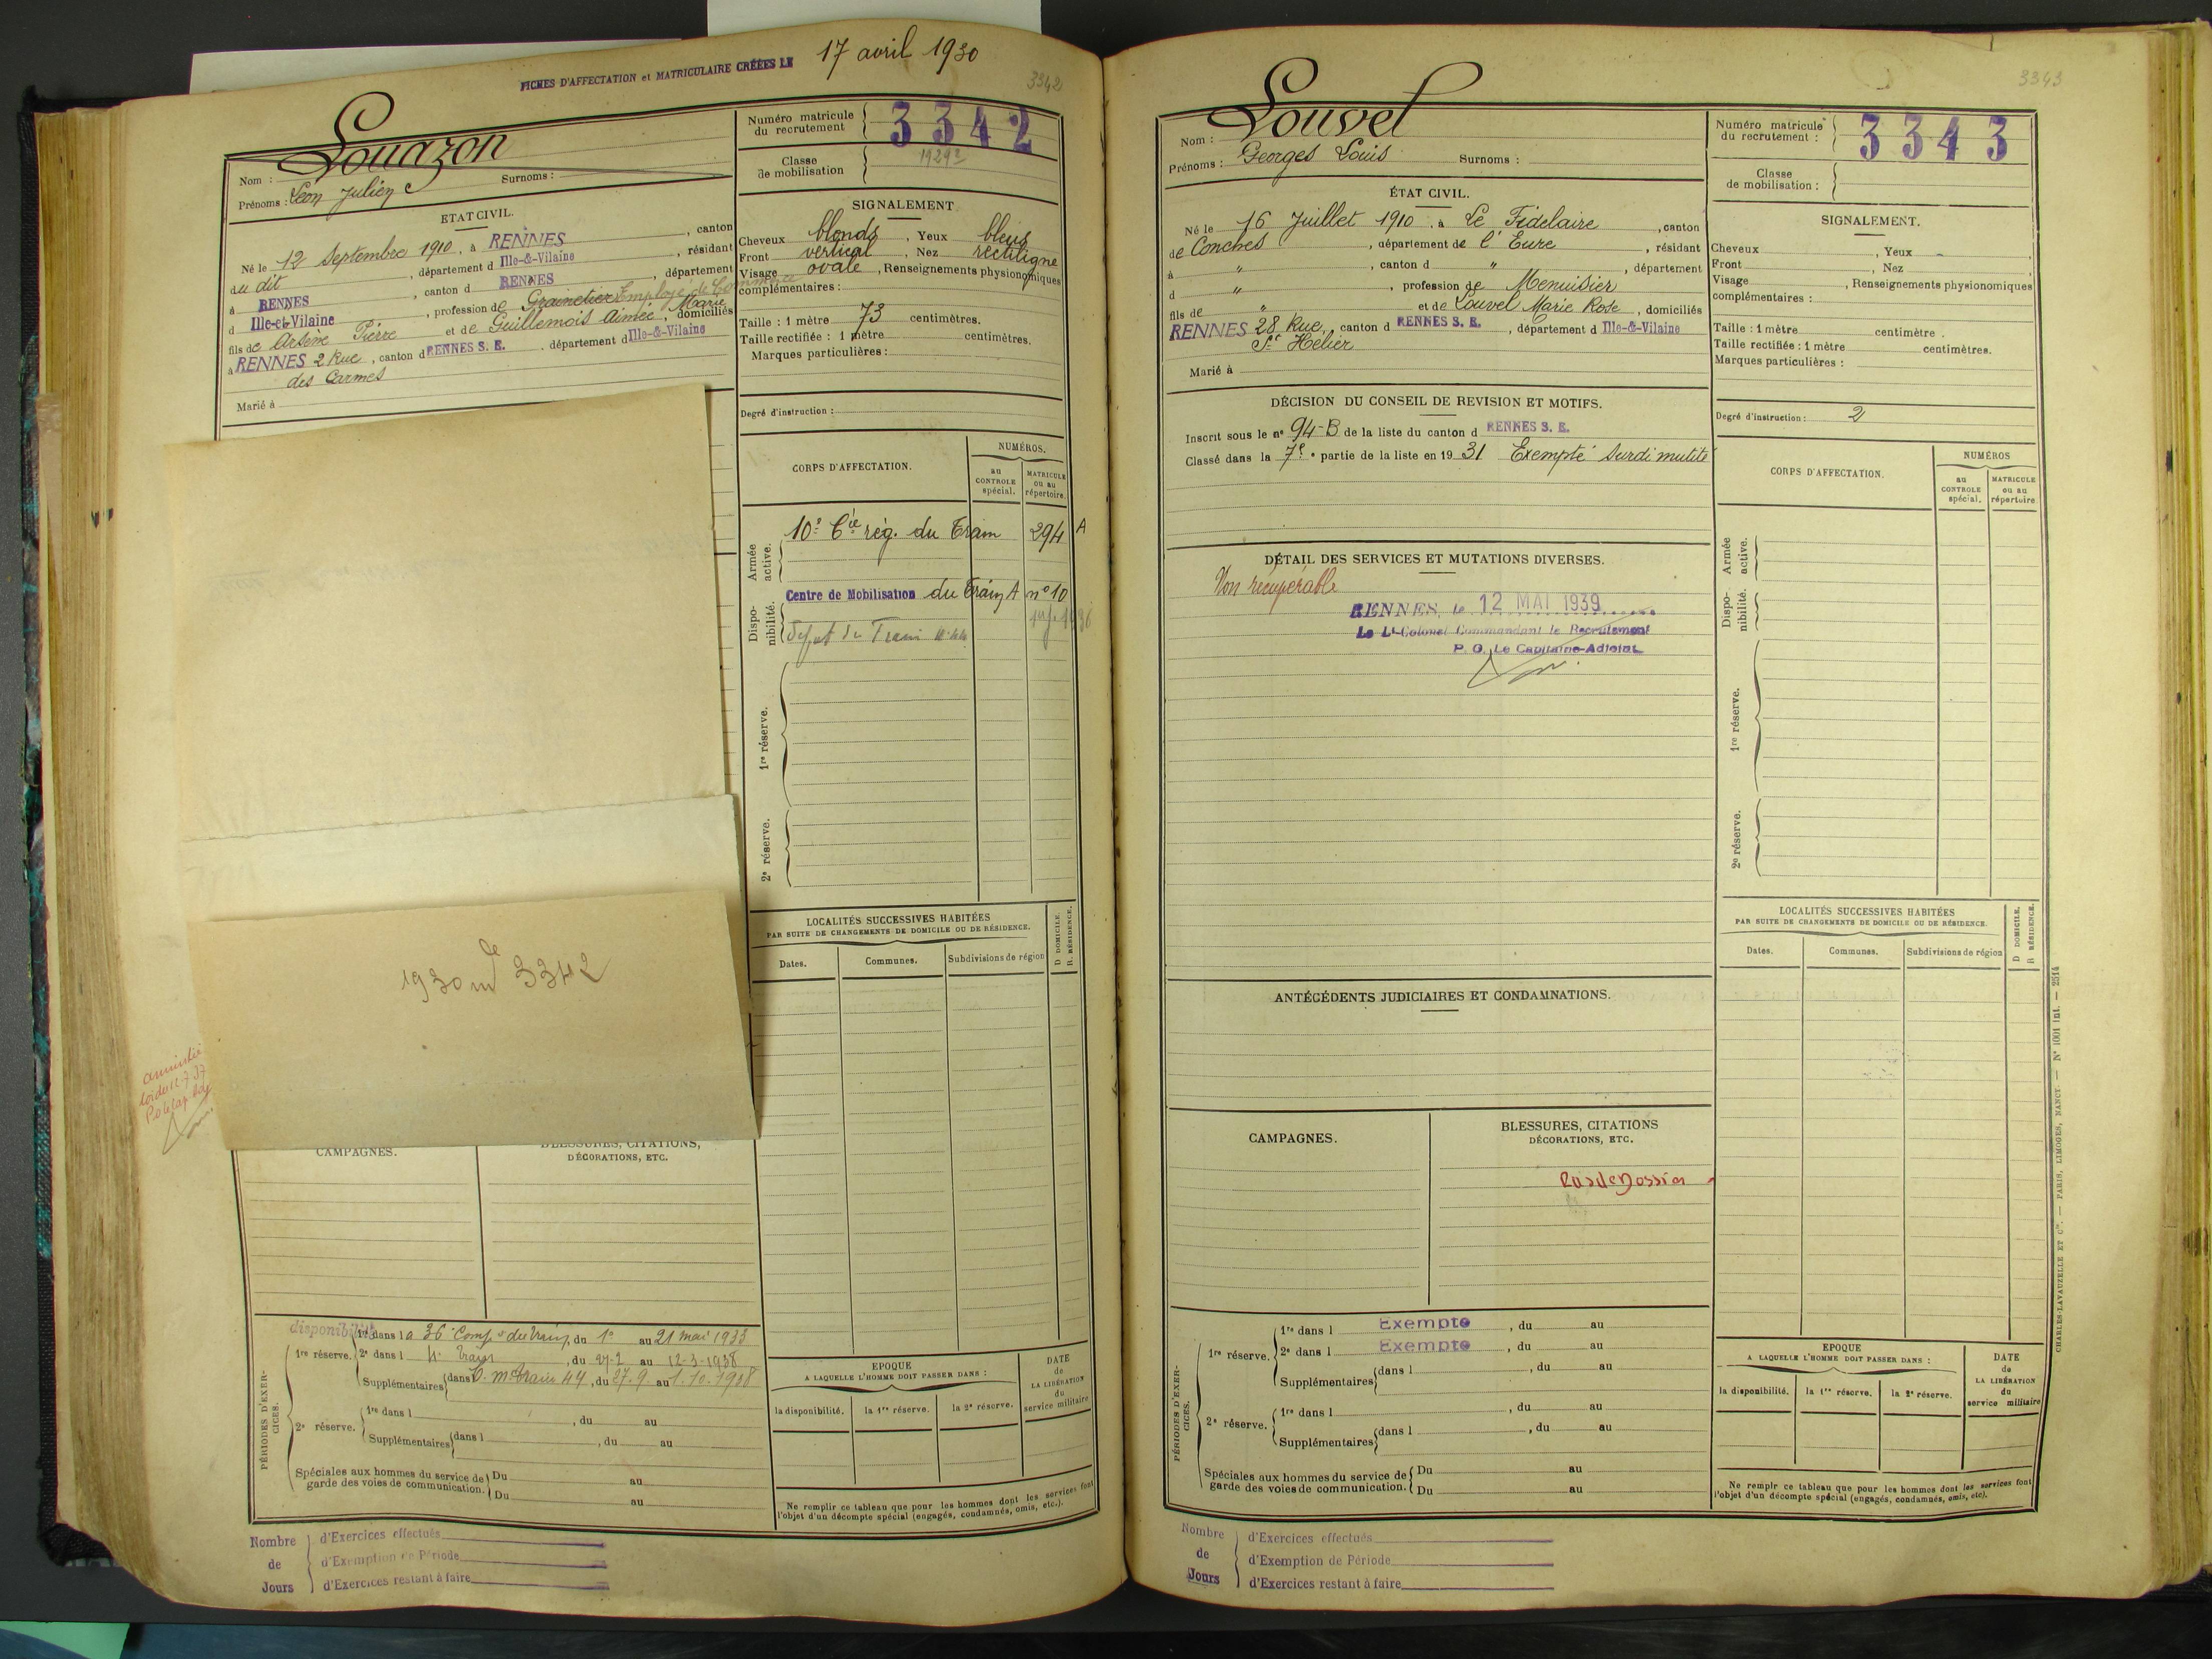 FICHES D'AFFECTATION et MATRICULAIRE CRÉÉES LE 17 avril 1930
3342
Nom : Louazon
Prénoms : Léon Julien Surnoms :
ETAT CIVIL.
Né le 12 Septembre 1910, à RENNES, canton
du dit, département d Ille-&-Vilaine, résidant
à RENNES, canton d RENNES, département
d Ille-et-Vilaine, profession de Grainetier Employé de Commerce
fils de Arsène Pierre et de Guillemois Aimée Marie, domiciliés
à RENNES 2 Rue, canton d RENNES S. E. département d Ille-&-Vilaine
des Carmes
Marié à
1930 m le 3342
amnistié
loi du 12.7.37
CAMPAGNES.
BLESSURES, CITATIONS,
DÉCORATIONS, ETC.
PÉRIODES D'EXERCICES.
disponibilité
1re réserve.
1re dans la 36e Comp. du train, du 1er au 21 mai 1933
2e dans l , du 27-2 au 12-3-1938
Supplémentaires dans , du 27.9 au 1.10.1938
2e réserve.
1re dans l , du au
Supplémentaires dans l , du au
Spéciales aux hommes du service de garde des voies de communication.
Du au
Du au
Nombre de Jours
d'Exercices effectués
d'Exemption de Période
d'Exercices restant à faire
Numéro matricule du recrutement 3342
Classe de mobilisation
SIGNALEMENT
Cheveux blonds, Yeux bleus
Front vertical, Nez rectiligne
Visage ovale, Renseignements physionomiques
complémentaires :
Taille : 1 mètre 73 centimètres.
Taille rectifiée : 1 mètre centimètres.
Marques particulières :
Degré d'instruction :
CORPS D'AFFECTATION.
NUMÉROS.
au CONTROLE spécial.
MATRICULE ou au répertoire.
Armée active.
10e Cie rég. du Train 294 A
Disponibilité.
Centre de Mobilisation du Train A n° 10
1re réserve.
2e réserve.
LOCALITÉS SUCCESSIVES HABITÉES
PAR SUITE DE CHANGEMENTS DE DOMICILE OU DE RÉSIDENCE.
D DOMICILE.
R RÉSIDENCE.
Dates. Communes. Subdivisions de région
EPOQUE
A LAQUELLE L'HOMME DOIT PASSER DANS :
la disponibilité. la 1re réserve. la 2e réserve.
DATE de LA LIBÉRATION du service militaire
Ne remplir ce tableau que pour les hommes dont les services font
l'objet d'un décompte spécial (engagés, condamnés, omis, etc.).
3343
Nom : Louvel
Prénoms : Georges Louis Surnoms :
ÉTAT CIVIL.
Né le 16 Juillet 1910, à Le Fidelaire, canton
de Conches, département de l'Eure, résidant
à ", canton d ", département
d ", profession de Menuisier
fils de " et de Louvel Marie Rose, domiciliés
RENNES 28 Rue, canton d RENNES S. E., département d Ille-&-Vilaine
St Helier
Marié à
DÉCISION DU CONSEIL DE REVISION ET MOTIFS.
Inscrit sous le n° 94-B de la liste du canton d RENNES S. E.
Classé dans la 7e partie de la liste en 1931 Exempté Surdi mutité
DÉTAIL DES SERVICES ET MUTATIONS DIVERSES.
Non récupérable
RENNES, le 12 MAI 1939
Le Lt-Colonel Commandant le Recrutement
P. O. Le Capitaine-Adjoint
ANTÉCÉDENTS JUDICIAIRES ET CONDAMNATIONS.
CAMPAGNES.
BLESSURES, CITATIONS
DÉCORATIONS, ETC.
Pas de Dossier
PÉRIODES D'EXERCICES.
1re réserve.
1re dans l Exempté, du au
2e dans l Exempté, du au
Supplémentaires dans l , du au
2e réserve.
1re dans l , du au
Supplémentaires dans l , du au
Spéciales aux hommes du service de garde des voies de communication.
Du au
Du au
Nombre de Jours
d'Exercices effectués
d'Exemption de Période
d'Exercices restant à faire
Numéro matricule du recrutement : 3343
Classe de mobilisation :
SIGNALEMENT.
Cheveux , Yeux
Front , Nez
Visage , Renseignements physionomiques
complémentaires :
Taille : 1 mètre centimètre.
Taille rectifiée : 1 mètre centimètres.
Marques particulières :
Degré d'instruction : 2
CORPS D'AFFECTATION.
NUMÉROS
au CONTROLE spécial.
MATRICULE ou au répertoire.
Armée active.
Disponibilité.
1re réserve.
2e réserve.
LOCALITÉS SUCCESSIVES HABITÉES
PAR SUITE DE CHANGEMENTS DE DOMICILE OU DE RÉSIDENCE.
D DOMICILE.
R RÉSIDENCE.
Dates. Communes. Subdivisions de région
EPOQUE
A LAQUELLE L'HOMME DOIT PASSER DANS :
la disponibilité. la 1re réserve. la 2e réserve.
DATE de LA LIBÉRATION du service militaire
Ne remplir ce tableau que pour les hommes dont les services font
l'objet d'un décompte spécial (engagés, condamnés, omis, etc).
CHARLES-LAVAUZELLE ET Cie. — PARIS, LIMOGES, NANCY. — N° 1001 int. — 2514